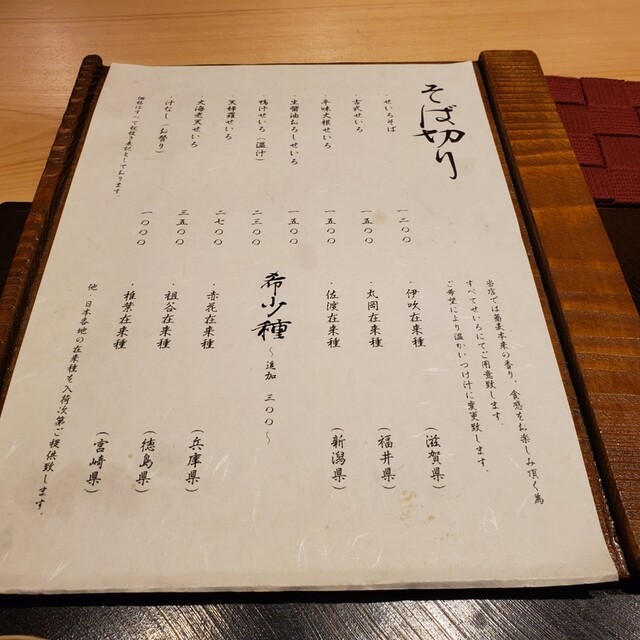 そば切り
・せいろそば 一二〇〇
・古式せいろ 一五〇〇
・辛味大根せいろ 一五〇〇
・生醤油おろしせいろ 一五〇〇
・鴨汁せいろ(温汁) 二三〇〇
・天婦羅せいろ 二七〇〇
・大海老天せいろ 三五〇〇
・汁なし(お祭り) 一〇〇〇
価格はすべて税抜き表記としております。
当店では蕎麦本来の香り、食感をお楽しみ頂く為
すべてせいろにてご用意致します。
ご希望により温かいつけ汁に変更致します。
・伊吹在来種(滋賀県)
・丸岡在来種(福井県)
・佐渡在来種(新潟県)
希少種
~追加 三〇〇~
・赤花在来種(兵庫県)
・祖谷在来種(徳島県)
・椎葉在来種(宮崎県)
他、日本各地の在来種を入荷次第ご提供致します。